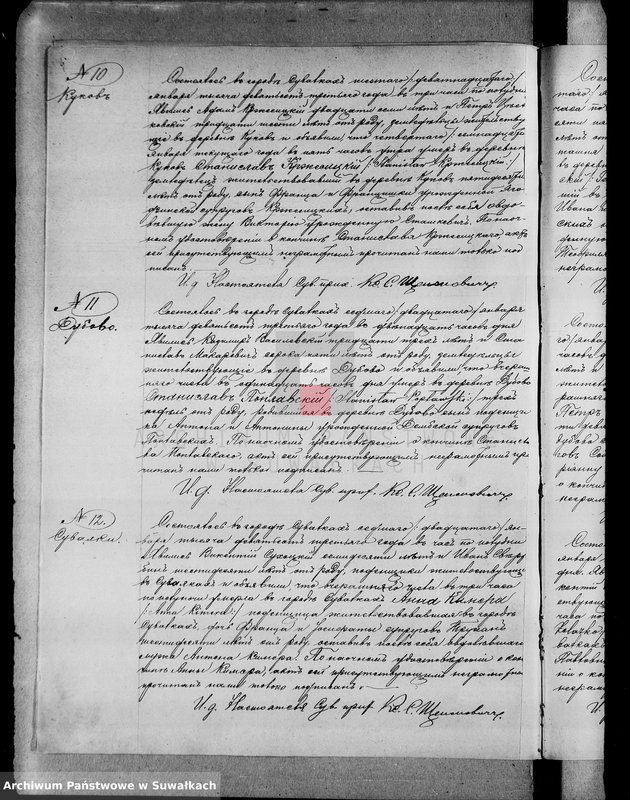 № 10
Куковъ
Состоялось въ городѣ Сувалкахъ шестаго /: девятнадцатаго :/
января тысяча девятьсотъ третьяго года, въ три часа по полудни
Явились Адамъ двадцати семи лѣтъ и Петръ
тридцати шести лѣтъ отъ роду, земледѣльцы жительству
щіе въ деревнѣ Куковъ и объявили, что четвертаго /: семнадцатаго
января текущаго года въ пять часовъ утра умеръ въ деревнѣ
Куковъ Станиславъ /: Stanisław :/
земледѣлецъ жительствовавшій въ деревнѣ Куковъ пятидесяти
лѣтъ отъ роду, сынъ Франца и Францишки урожденной
супруговъ оставивъ послѣ себя овдо
вѣвшую жену Викторію урожденную Станкевичъ. По настоя
тельномъ удостовѣреніи о кончинѣ Станислава актъ
сей присутствующимъ неграмотнымъ прочитанъ нами только под
писанъ.
И. д. Настоятеля Сув. прих. Кс. С. Щеснович
№ 11
Дубово.
Состоялось въ городѣ Сувалкахъ седьмаго /: двадцатаго :/ января
тысяча девятьсотъ третьяго года въ двѣнадцать часовъ дня
Явились Казимиръ Василевскій тридцати трехъ лѣтъ и Ста
ниславъ Макаревичъ сорока пяти лѣтъ отъ роду, земледѣльцы
жительствующіе въ деревнѣ Дубово и объявили, что вчераш
няго числа въ одиннадцать часовъ дня умеръ въ деревнѣ Дубово
Станиславъ Поплавскій /: Stanisław Popławski :/ трехъ
недѣль отъ роду, родившійся въ деревнѣ Дубово сынъ поденщи
ка Антона и Антонины урожденной супруговъ
Поплавскихъ. По настоящемъ удостовѣреніи о кончинѣ Станисла
ва Поплавскаго, актъ сей присутствующимъ неграмотнымъ про
читанъ нами только подписанъ.
И. д. Настоятеля Сув. прих. Кс. С. Щеснович
№ 12.
Сувалки.
Состоялось въ городѣ Сувалкахъ седьмаго /: двадцатаго :/ ян
варя тысяча девятьсотъ третьяго года въ часъ по полудни
Явились Викентій Сухоцкій семидесяти лѣтъ и Иванъ
пятидесяти лѣтъ отъ роду, поденщики жительствующіе
въ Сувалкахъ и объявили, что вчерашняго числа въ три часа
по полуночи умерла въ городѣ Сувалкахъ Анна Кимера
/: Anna Kimera :/ поденщица жительствовавшая въ городѣ
Сувалкахъ, дочь Франца и супруговъ
шестидесяти лѣтъ отъ роду, оставивъ послѣ себя овдовѣвшаго
мужа Антона Кимера. По настоящемъ удостовѣреніи о кон
чинѣ Анны Кимера, актъ сей присутствующимъ неграмотнымъ
прочитанъ нами только подписанъ.
И. д. Настоятеля Сув. прих. Кс. С. Щеснович
Archiwum Państwowe w Suwałkach